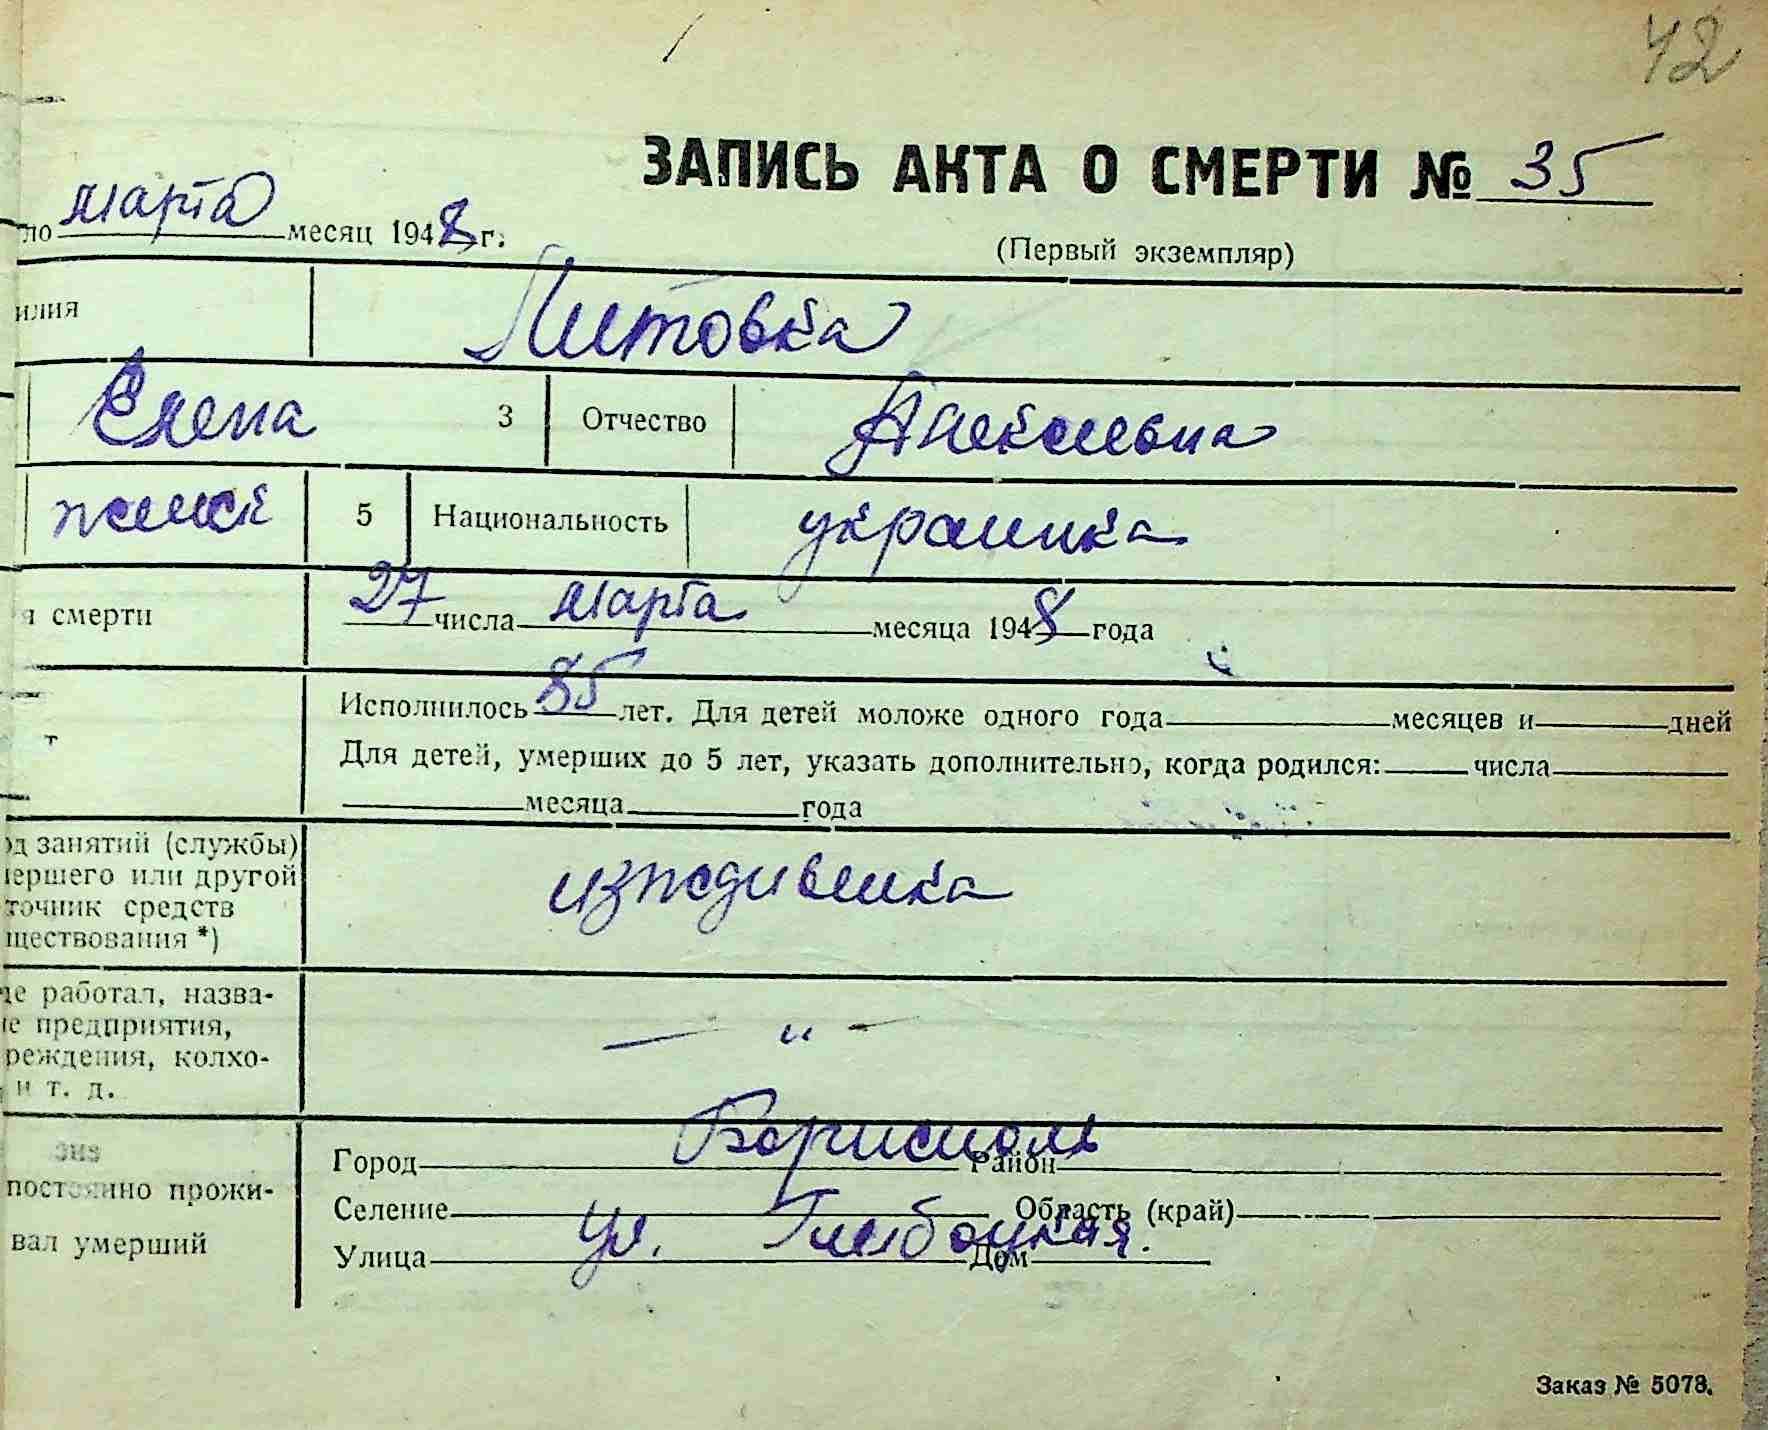 42
ЗАПИСЬ АКТА О СМЕРТИ № 35
ло марта месяц 1948 г.
(Первый экземпляр)
илия Литовка
Елена 3 Отчество Алексеевна
женск 5 Национальность украинка
я смерти 27 числа марта месяца 1948 года
Исполнилось 85 лет. Для детей моложе одного года месяцев и дней
Для детей, умерших до 5 лет, указать дополнительно, когда родился: числа
месяца года
од занятий (службы)
мершего или другой
точник средств
ществования *)
иждивенка
де работал, назва-
ие предприятия,
реждения, колхо-
и т. д.
— " —
постоянно прожи-
вал умерший
Город Борисполь Район
Селение Область (край)
Улица ул. Глибоцкая. Дом
Заказ № 5078.